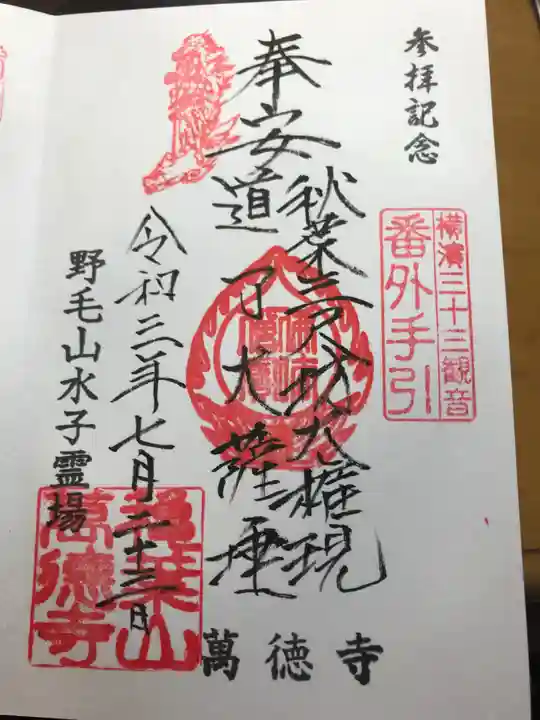 参拝記念
横濱三十三観音
番外手引
秋葉三尺坊大権現
奉安
道了大薩埵
令和三年七月二十三日
野毛山水子霊場
萬徳寺
萬徳寺